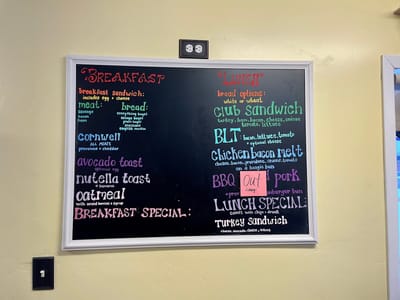 BREAKFAST
breakfast sandwich:
includes egg + cheese
meat: bread:
sausage everything bagel
bacon
ham
english muffin
cornwell
ALL MEATS
provolone + cheddar
avocado toast
nutella toast
+ bananas
oatmeal
BREAKFAST SPECIAL:
LUNCH
bread options:
white or wheat
club sandwich
turkey, ham, bacon, cheese,
tomato, lettuce
BLT: bacon, lettuce, tomato
+ optional cheese
chicken bacon melt
chicken, bacon, cheese, tomato
on a bagel
BBQ pork
Out
LUNCH SPECIAL:
comes with chips + drink
Turkey Sandwich